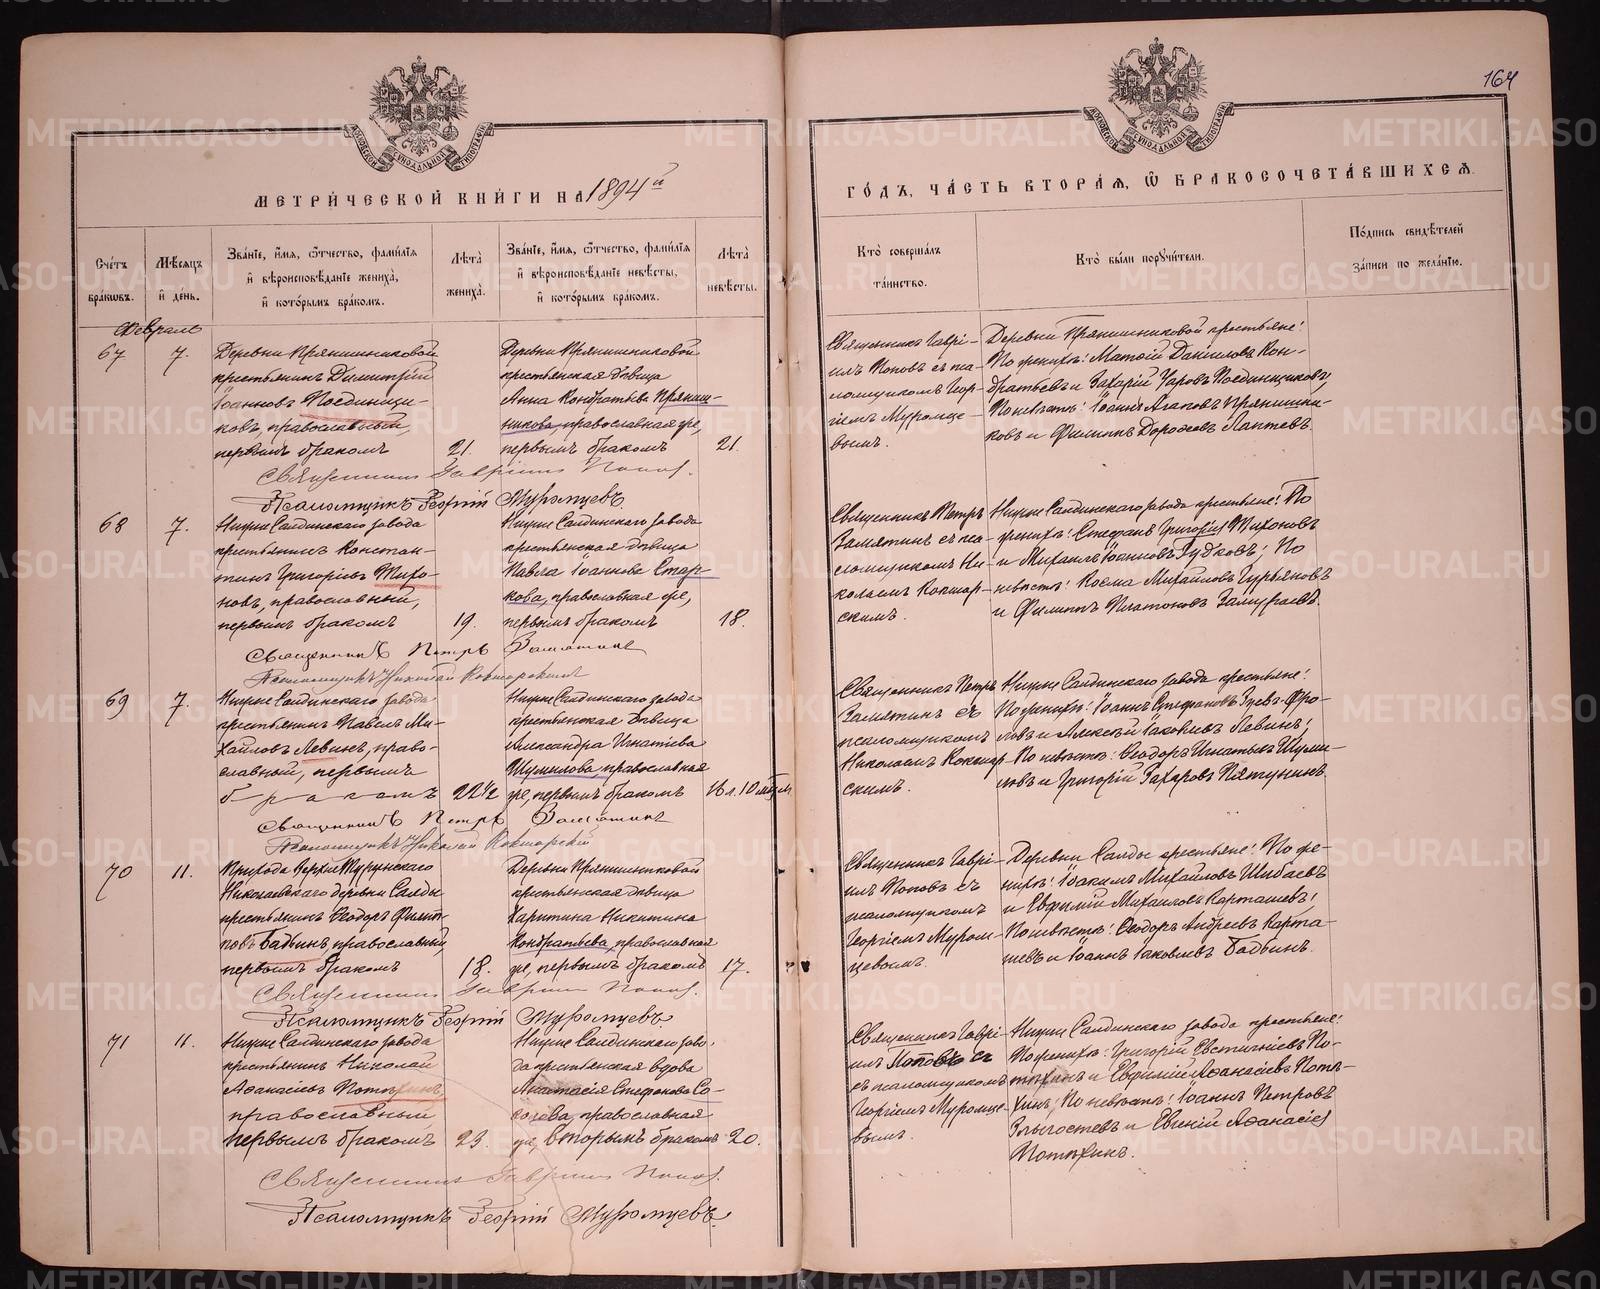 164
МОСКОВСКОЙ СѴНОДАЛЬНОЙ ТИПОГРАФІИ
МОСКОВСКОЙ СѴНОДАЛЬНОЙ ТИПОГРАФІИ
МЕТРИ́ЧЕСКОЙ КНИ́ГИ НА 1894й
ГО́ДЪ, ЧА́СТЬ ВТОРА́Я, Ѽ БРАКОСОЧЕТА́ВШИХСЯ.
Сче́тъ бра́кѡвъ.
Мѣ́сяцъ и҆ де́нь.
Зва́нїе, и҆́мя, ѻ҆́тчество, фами́лїя и҆ вѣроисповѣ́данїе жениха̀, и҆ кото́рымъ бра́комъ.
Лѣ́та жениха̀.
Зва́нїе, и҆́мя, ѻ҆́тчество, фами́лїя и҆ вѣроисповѣ́данїе невѣ́сты, и҆ кото́рымъ бра́комъ.
Лѣ́та невѣ́сты.
Кто̀ соверша́лъ та́инство.
Кто̀ бы́ли порꙋчи́тели.
По́дпись свидѣ́телей за́писи по жела́нїю.
Февраль
67
7.
Деревни Прянишниковой
крестьянинъ Димитрій
Іоанновъ Поединщи-
ковъ, православный,
первымъ бракомъ
21.
Деревни Прянишниковой
крестьянская дѣвица
Анна Кондратьева Пряниш-
никова, православная же,
первымъ бракомъ
21.
Священникъ Гаврі-
илъ Поповъ съ пса-
ломщикомъ Геор-
гіемъ Муромце-
вымъ.
Деревни Прянишниковой крестьяне:
По женихѣ: Матѳій Даніиловъ Кон-
дратьевъ и Захарій Уаровъ Поединщиковъ,
По невѣстѣ: Іоаннъ Агаповъ Прянишни-
ковъ и Филиппъ Дороѳеевъ Лаптевъ.
Священникъ Гавріилъ Попов.
Псаломщикъ Георгій Муромцевъ.
68
7.
Нижне Салдинскаго завода
крестьянинъ Констан-
тинъ Григорьевъ Тихо-
новъ, православный,
первымъ бракомъ
19.
Нижне Салдинскаго завода
крестьянская дѣвица
Павла Іоаннова Стар-
кова, православная же,
первымъ бракомъ
18.
Священникъ Петръ
Замятинъ съ пса-
ломщикомъ Ни-
колаемъ Кокшар-
скимъ.
Нижне Салдинскаго завода крестьяне: По
женихѣ: Стефанъ Григорьевъ Тихоновъ
и Михаилъ Іоанновъ Гудковъ; По
невѣстѣ: Косма Михайловъ Гурьяновъ
и Филиппъ Платоновъ Замураевъ.
Священникъ Петръ Замятинъ
Псаломщикъ Николай Кокшарскій
69
7.
Нижне Салдинскаго завода
крестьянинъ Павелъ Ми-
хайловъ Левинъ, право-
славный, первымъ
бракомъ
22 1/2
Нижне Салдинскаго завода
крестьянская дѣвица
Александра Игнатіева
Шумилова, православная
же, первымъ бракомъ
16 л. 10 мѣс.
Священникъ Петръ
Замятинъ съ
псаломщикомъ
Николаемъ Кокшар-
скимъ.
Нижне Салдинскаго завода крестьяне:
По женихѣ: Іоаннъ Стефановъ Зуевъ-Фро-
ловъ и Алексѣй Іаковлевъ Левинъ;
По невѣстѣ: Ѳеодоръ Игнатьевъ Шуми-
ловъ и Григорій Захаровъ Пятунинъ.
Священникъ Петръ Замятинъ
Псаломщикъ Николай Кокшарскій
70
11.
Прихода Верхне Туринскаго
Николаевскаго деревни Салды
крестьянинъ Ѳеодоръ Филип-
повъ Бабинъ, православный,
первымъ бракомъ
18.
Деревни Прянишниковой
крестьянская дѣвица
Харитина Никитина
Кондратьева, православная
же, первымъ бракомъ
17.
Священникъ Гаврі-
илъ Поповъ съ
псаломщикомъ
Георгіемъ Муром-
цевымъ.
Деревни Салды крестьяне: По же-
нихѣ: Іоакимъ Михайловъ Шибаевъ
и Евфимій Михайловъ Карташевъ;
По невѣстѣ: Ѳеодоръ Андреевъ Карта-
шевъ и Іоаннъ Іаковлевъ Бабинъ.
Священникъ Гавріилъ Попов.
Псаломщикъ Георгій Муромцевъ.
71
11.
Нижне Салдинскаго завода
крестьянинъ Николай
Аѳанасіевъ Потѣхинъ,
православный
первымъ бракомъ
23.
Нижне Салдинскаго заво-
да крестьянская вдова
Анастасія Стефанова Со-
колова, православная
же, вторымъ бракомъ
20.
Священникъ Гаврі-
илъ Поповъ съ
съ псаломщикомъ
Георгіемъ Муромце-
вымъ.
Нижне Салдинскаго завода крестьяне:
По женихѣ: Григорій Евстигніевъ По-
тѣхинъ и Евфимій Аѳанасіевъ Потѣ-
хинъ; По невѣстѣ: Іоаннъ Петровъ
Злыгостевъ и Евгеній Аѳанасіев
Потѣхинъ.
Священникъ Гавріилъ Попов.
Псаломщикъ Георгій Муромцевъ.
METRIKI.GASO-URAL.RU